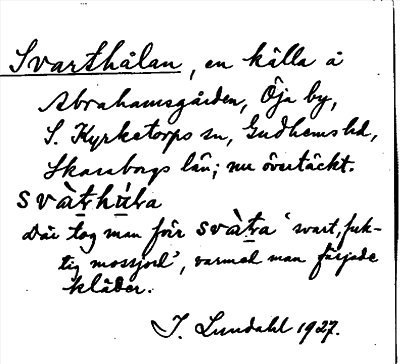 Svarthålan, en källa å
Abrahamsgården, Öja by,
S. Kyrketorps sn, Gudhems hd,
Skaraborgs län; nu övertäckt.
svàthúla
Där tog man förr svàta 'svart, fuk-
tig mossjord', varmed man färgade
kläder.
J. Lundahl 1927.